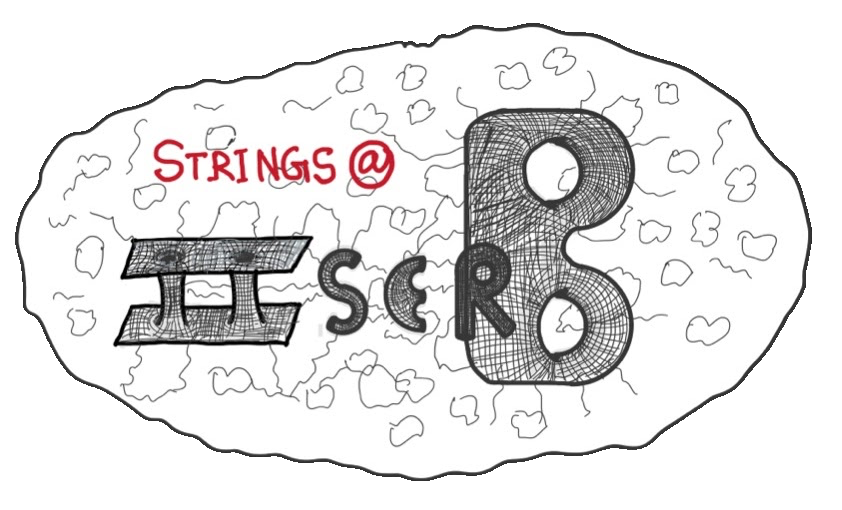 STRINGS @
IISERB